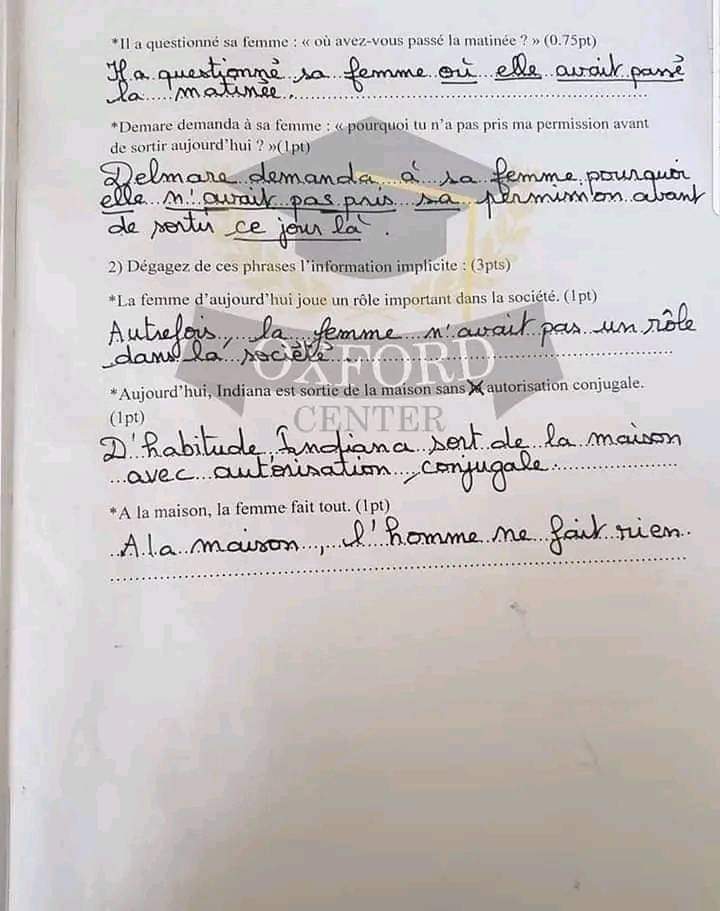 *Il a questionné sa femme : « où avez-vous passé la matinée ? » (0.75pt)
Il a questionné sa femme où elle avait passé
la matinée.
*Demare demanda à sa femme : « pourquoi tu n'a pas pris ma permission avant
de sortir aujourd'hui ? »(1pt)
Delmare demanda à sa femme pourquoi
elle n'avait pas pris sa permission avant
de sortir ce jour là.
2) Dégagez de ces phrases l'information implicite : (3pts)
*La femme d'aujourd'hui joue un rôle important dans la société. (1pt)
Autrefois, la femme n'avait pas un rôle
dans la société
OXFORD
*Aujourd'hui, Indiana est sortie de la maison sans autorisation conjugale.
(1pt)
CENTER
D'habitude, Indiana sort de la maison
avec autorisation conjugale.
*A la maison, la femme fait tout. (1pt)
A la maison, l'homme ne fait rien.